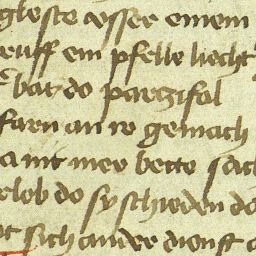 gleste vsser einem
ruff ein pfelle liecht
bat do partzifal
farn an ir gemach
a nit mer bette
rlob do sy schieden do
sich ander dienst